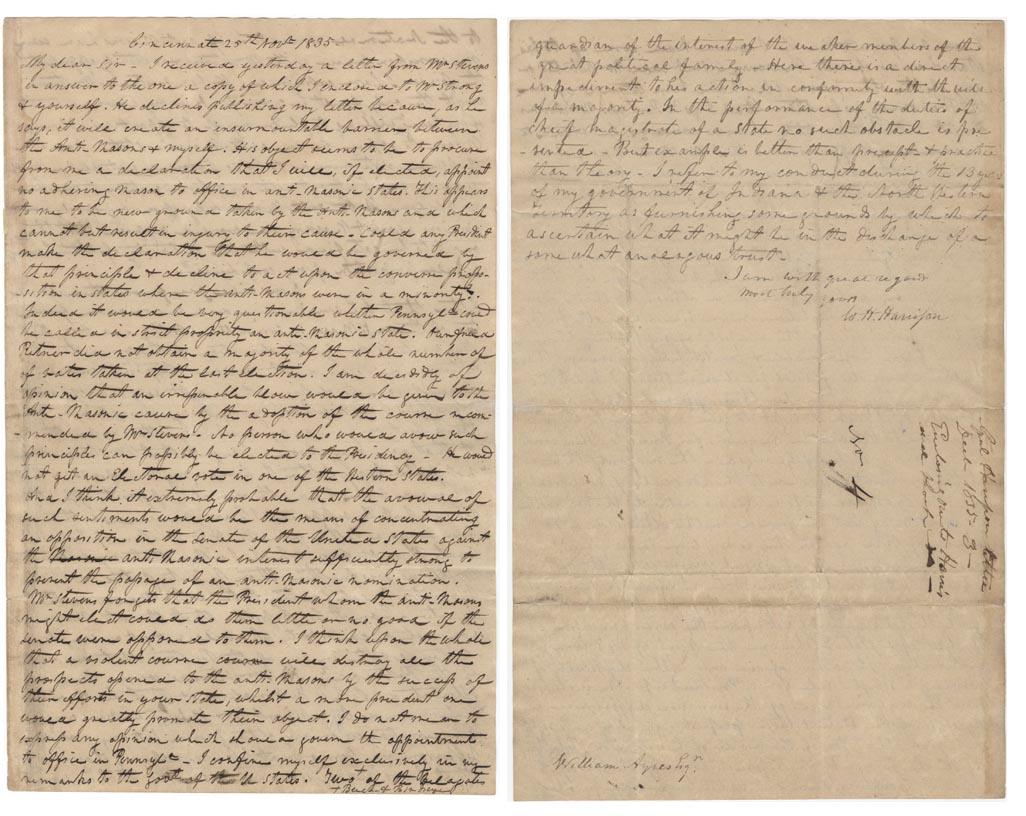 Cincinnati 25th Novr. 1835
My dear Sir - I received yesterday a letter from Mr Stevens
in answer to the one a copy of which I inclosed to Mr Strong
& yourself. He declines publishing my letter because, as he
says, it will create an insurmountable barrier between
the Anti-Masons & myself. His object seems to be to procure
from me a declaration that I will, if elected, appoint
no adhering Mason to office in anti-Masonic States. This appears
to me to be new ground taken by the Anti-Masons and which
cannot but result in injury to their cause. Could any President
make the declaration that he would be governed by
that principle & decline to act upon the converse propo-
-sition in states where the anti-Masons were in a minority?
Indeed it would be very questionable whether Pennsyla could
be called in strict propriety an anti-Masonic State. Our friend
Ritner did not obtain a majority of the whole number of
of votes taken at the last election. I am decidedly of
opinion that an irreparable blow would be given to the
Anti-Masonic cause by the adoption of the course recom-
-mended by Mr Stevens - No person who would avow such
principles can possibly be elected to the Presidency - He would
not get an Electoral vote in one of the Western States.
And I think it extremely probable that the avowal of
such sentiments would be the means of concentrating
an opposition in the Senate of the United States against
the Masonic anti Masonic interest sufficiently strong to
prevent the passage of an anti-Masonic nomination.
Mr Stevens forgets that the President whom the anti-Masons
might elect could do them little or no good if the
senate were opposed to them. I think upon the whole
that a violent course course will destroy all the
prospects opened to the anti-Masons by the success of
their efforts in your State, whilst a more prudent one
would greatly promote their object. I do not mean to
express any opinion which should govern the appointments
to office in Pennsyla - I confine myself exclusively in my
remarks to the Govt of the U States. Two+ of the Delegates
guardian of the interest of the weaker members of the
great political family - Here there is a direct
impediment to his action in conformity with the wills
of a majority. In the performance of the duties of
cheif magistrate of a State no such obstacle is pre
-sented - But example is better than precept - & practice
than theory - I refer to my conduct during the 13 years
of my government of Indiana & the North Western
Territory as furnishing some grounds by which to
ascertain what it might be in the discharge of a
some what analagous trust -
I am with great regard
most truly yours
W. H. Harrison
No 4
Genl Harrison
1835
William Ayres Esqr.